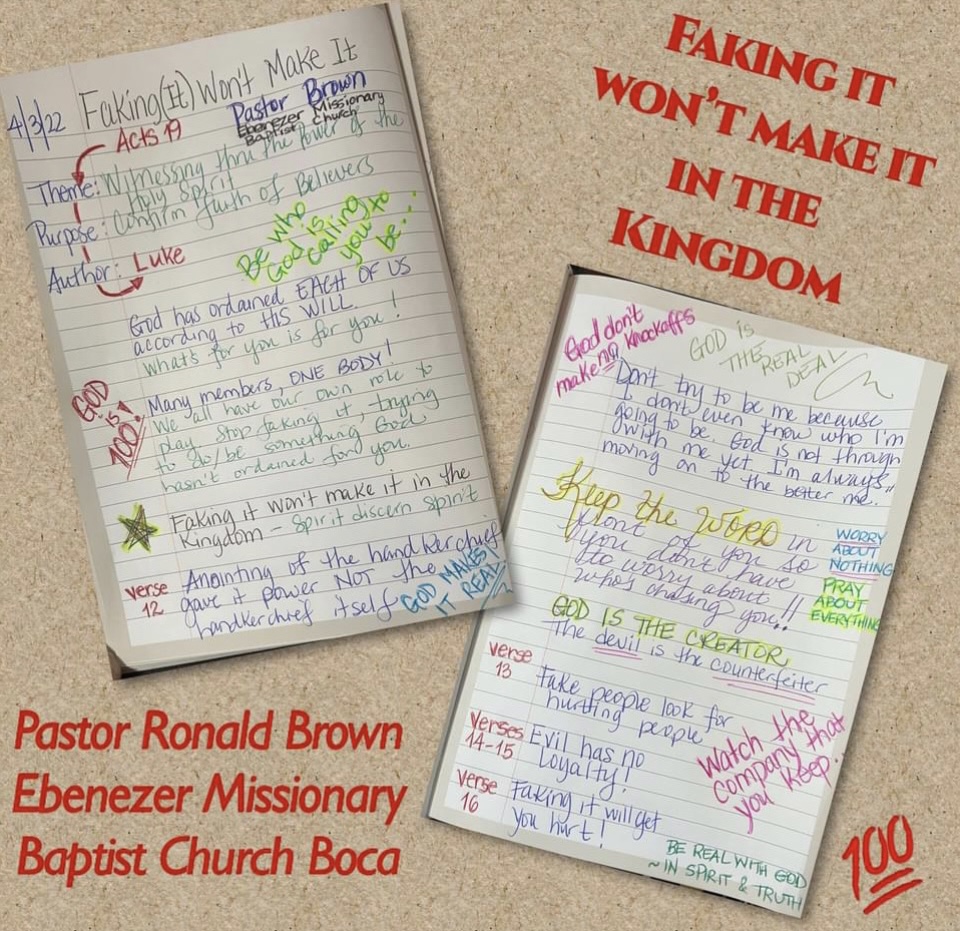 4/3/22
Faking(It) Won't Make It
Acts 19
Pastor Brown
Ebenezer Missionary
Baptist Church
Theme: Witnessing thru the power of the
Holy Spirit
Purpose: Confirm faith of Believers
Author: Luke
Be who
God is
calling
you to
be...
God has ordained EACH OF US
according to HIS WILL.
What's for you is for you!
GOD
is
100!
Many members, ONE BODY!
We all have our own role to
play, stop faking it, trying
to do/be something God
hasn't ordained for you.
Faking it won't make it in the
Kingdom - Spirit discern Spirit
verse
12
Anointing of the handkerchief
gave it power NOT the
handkerchief itself
GOD MAKES
IT REAL!
FAKING IT
WON'T MAKE IT
IN THE
KINGDOM
God don't
make no knockoffs
GOD is
THE REAL
DEAL
Don't try to be me because
I don't even know who I'm
going to be. God is not through
with me yet. I'm always
moving on to the better me."
Keep the WORD in
front of you so
you don't have
to worry about
who's chasing you!!
WORRY
ABOUT
NOTHING
PRAY
ABOUT
EVERYTHING
GOD IS THE CREATOR
The devil is the counterfeiter
verse
13
Fake people look for
hurting people
Verses
14-15
Evil has no
Loyalty!
Watch the
company that
you keep.
verse
16
Faking it will get
you hurt!
BE REAL WITH GOD
~IN SPIRIT & TRUTH
Pastor Ronald Brown
Ebenezer Missionary
Baptist Church Boca
100